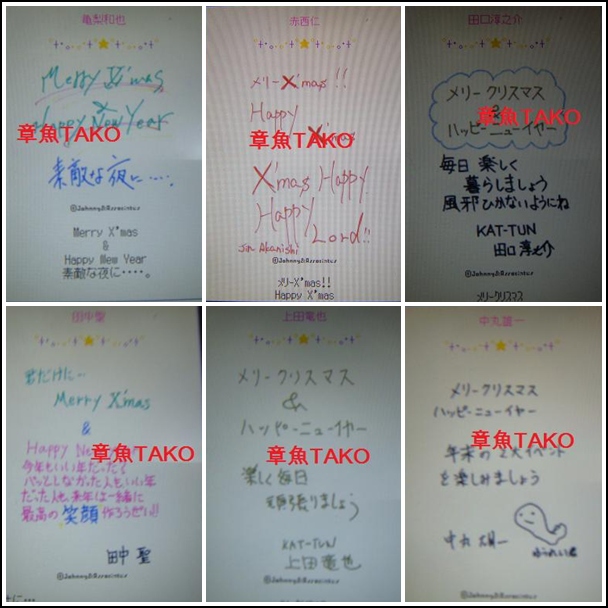 亀梨和也
Merry X'mas
&
Happy New Year
章魚TAKO
素敵な夜に‥‥.
©Johnny&Associates
Merry X'mas
&
Happy New Year
素敵な夜に・・・・。
赤西仁
メリーX'mas!!
Happy
X'mas
章魚TAKO
X'mas Happy
Happy
Lord!!
Jin Akanishi
©Johnny&Associates
メリーX'mas!!
Happy X'mas
田口淳之介
メリークリスマス
&
章魚TAKO
ハッピーニューイヤー
毎日 楽しく
暮らしましょう
風邪ひかないようにね
KAT-TUN
田口 淳之介
©Johnny&Associates
メリークリスマス
田中聖
君だけに…
Merry X'mas
&
Happy New
章魚TAKO
今年もいい年だった人
パッとしなかった人もいい年
だった人も、来年は一緒に
最高の笑顔作ろうぜい!!
田中 聖
©Johnny&Associates
上田竜也
メリークリスマス
&
ハッピーニューイヤー
章魚TAKO
楽しく毎日
頑張りましょう
KAT-TUN
上田竜也
©Johnny&Associates
中丸雄一
メリークリスマス
ハッピーニューイヤー
章魚TAKO
年末の2大イベント
を楽しみましょう
中丸 雄一
ゆうれい君
©Johnny&Associates